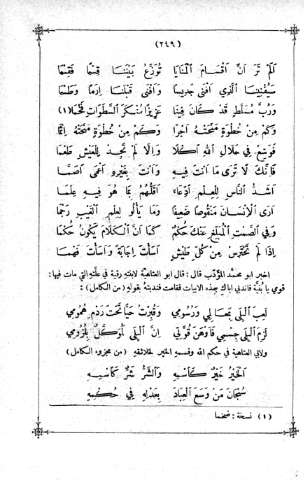 (٢٤٩)
أَلَمْ تَرَ أَنَّ أَقْسَامَ ٱلْمَنَايَا تُوَزَّعُ بَيْنَنَا قِسْمًا فَقِسْمَا
سَيُفْنِينَا ٱلَّذِي أَفْنَى جَدِيسًا وَأَفْنَى قَبْلَنَا إِرَمًا وَطَسْمَا
وَرُبَّ مُسَلَّطٍ قَدْ كَانَ فِينَا عَزِيزًا مُنْكَرَ ٱلسَّطَوَاتِ فَخْمَا (١)
وَكَمْ مِنْ خُطْوَةٍ مَنَحَتْهُ أَجْرًا وَكَمْ مِنْ خُطْوَةٍ مَنَحَتْهُ إِثْمَا
تَوَسَّعْ فِي حَلَالِ ٱللهِ أَكْلًا وَإِلَّا لَمْ تَجِدْ لِلْعَيْشِ طَعْمَا
كَأَنَّكَ لَا تَرَى مَا أَنْتَ فِيهِ وَأَنْتَ بِغَيْرِهِ أَعْمَى أَصَمَّا
أَشَدُّ ٱلنَّاسِ لِلْعِلْمِ ٱدِّعَاءً أَقَلُّهُمُ بِمَا هُوَ فِيهِ عِلْمَا
أَرَى ٱلْإِنْسَانَ مَنْقُوصًا ضَعِيفًا وَمَا يَأْلُو لِعِلْمِ ٱلْغَيْبِ رَجْمَا
وَفِي ٱلصَّمْتِ ٱلْمُبَلِّغِ عَنْكَ حُكْمٌ كَمَا أَنَّ ٱلْكَلَامَ يَكُونُ حُكْمَا
إِذَا لَمْ تَحْتَرِسْ مِنْ كُلِّ طَيْشٍ أَسَأْتَ إِجَابَةً وَأَسَأْتَ فَهْمَا
اخبر ابو محمَّد المؤدِّب قال: قال ابو العتاهية لابنتهِ رقية في علَّتهِ التي مات فيها:
قومي يا بُنَيَّة فاندبي اباكِ بهذه الابيات فقامت فندبتهُ بقولهِ (من الكامل):
لَعِبَ ٱلْبِلَى بِمَعَالِمِي وَرُسُومِي وَقُبِرْتُ حَيًّا تَحْتَ رَدْمِ هُمُومِي
لَزِمَ ٱلْبِلَى جِسْمِي فَأَوْهَنَ قُوَّتِي إِنَّ ٱلْبِلَى لَمُوَكَّلٌ بِلُزُومِي
ولابي العتاهية في حكم الله وقسمهِ الخير لخلائقهِ (من مجزوء الكامل)
ٱلْخَيْرُ خَيْرٌ كَٱسْمِهِ وَٱلشَّرُّ شَرٌّ كَٱسْمِهِ
سُبْحَانَ مَنْ وَسِعَ ٱلْعِبَادَ بِعَدْلِهِ فِي حُكْمِهِ
(١) نسخة: ضخما